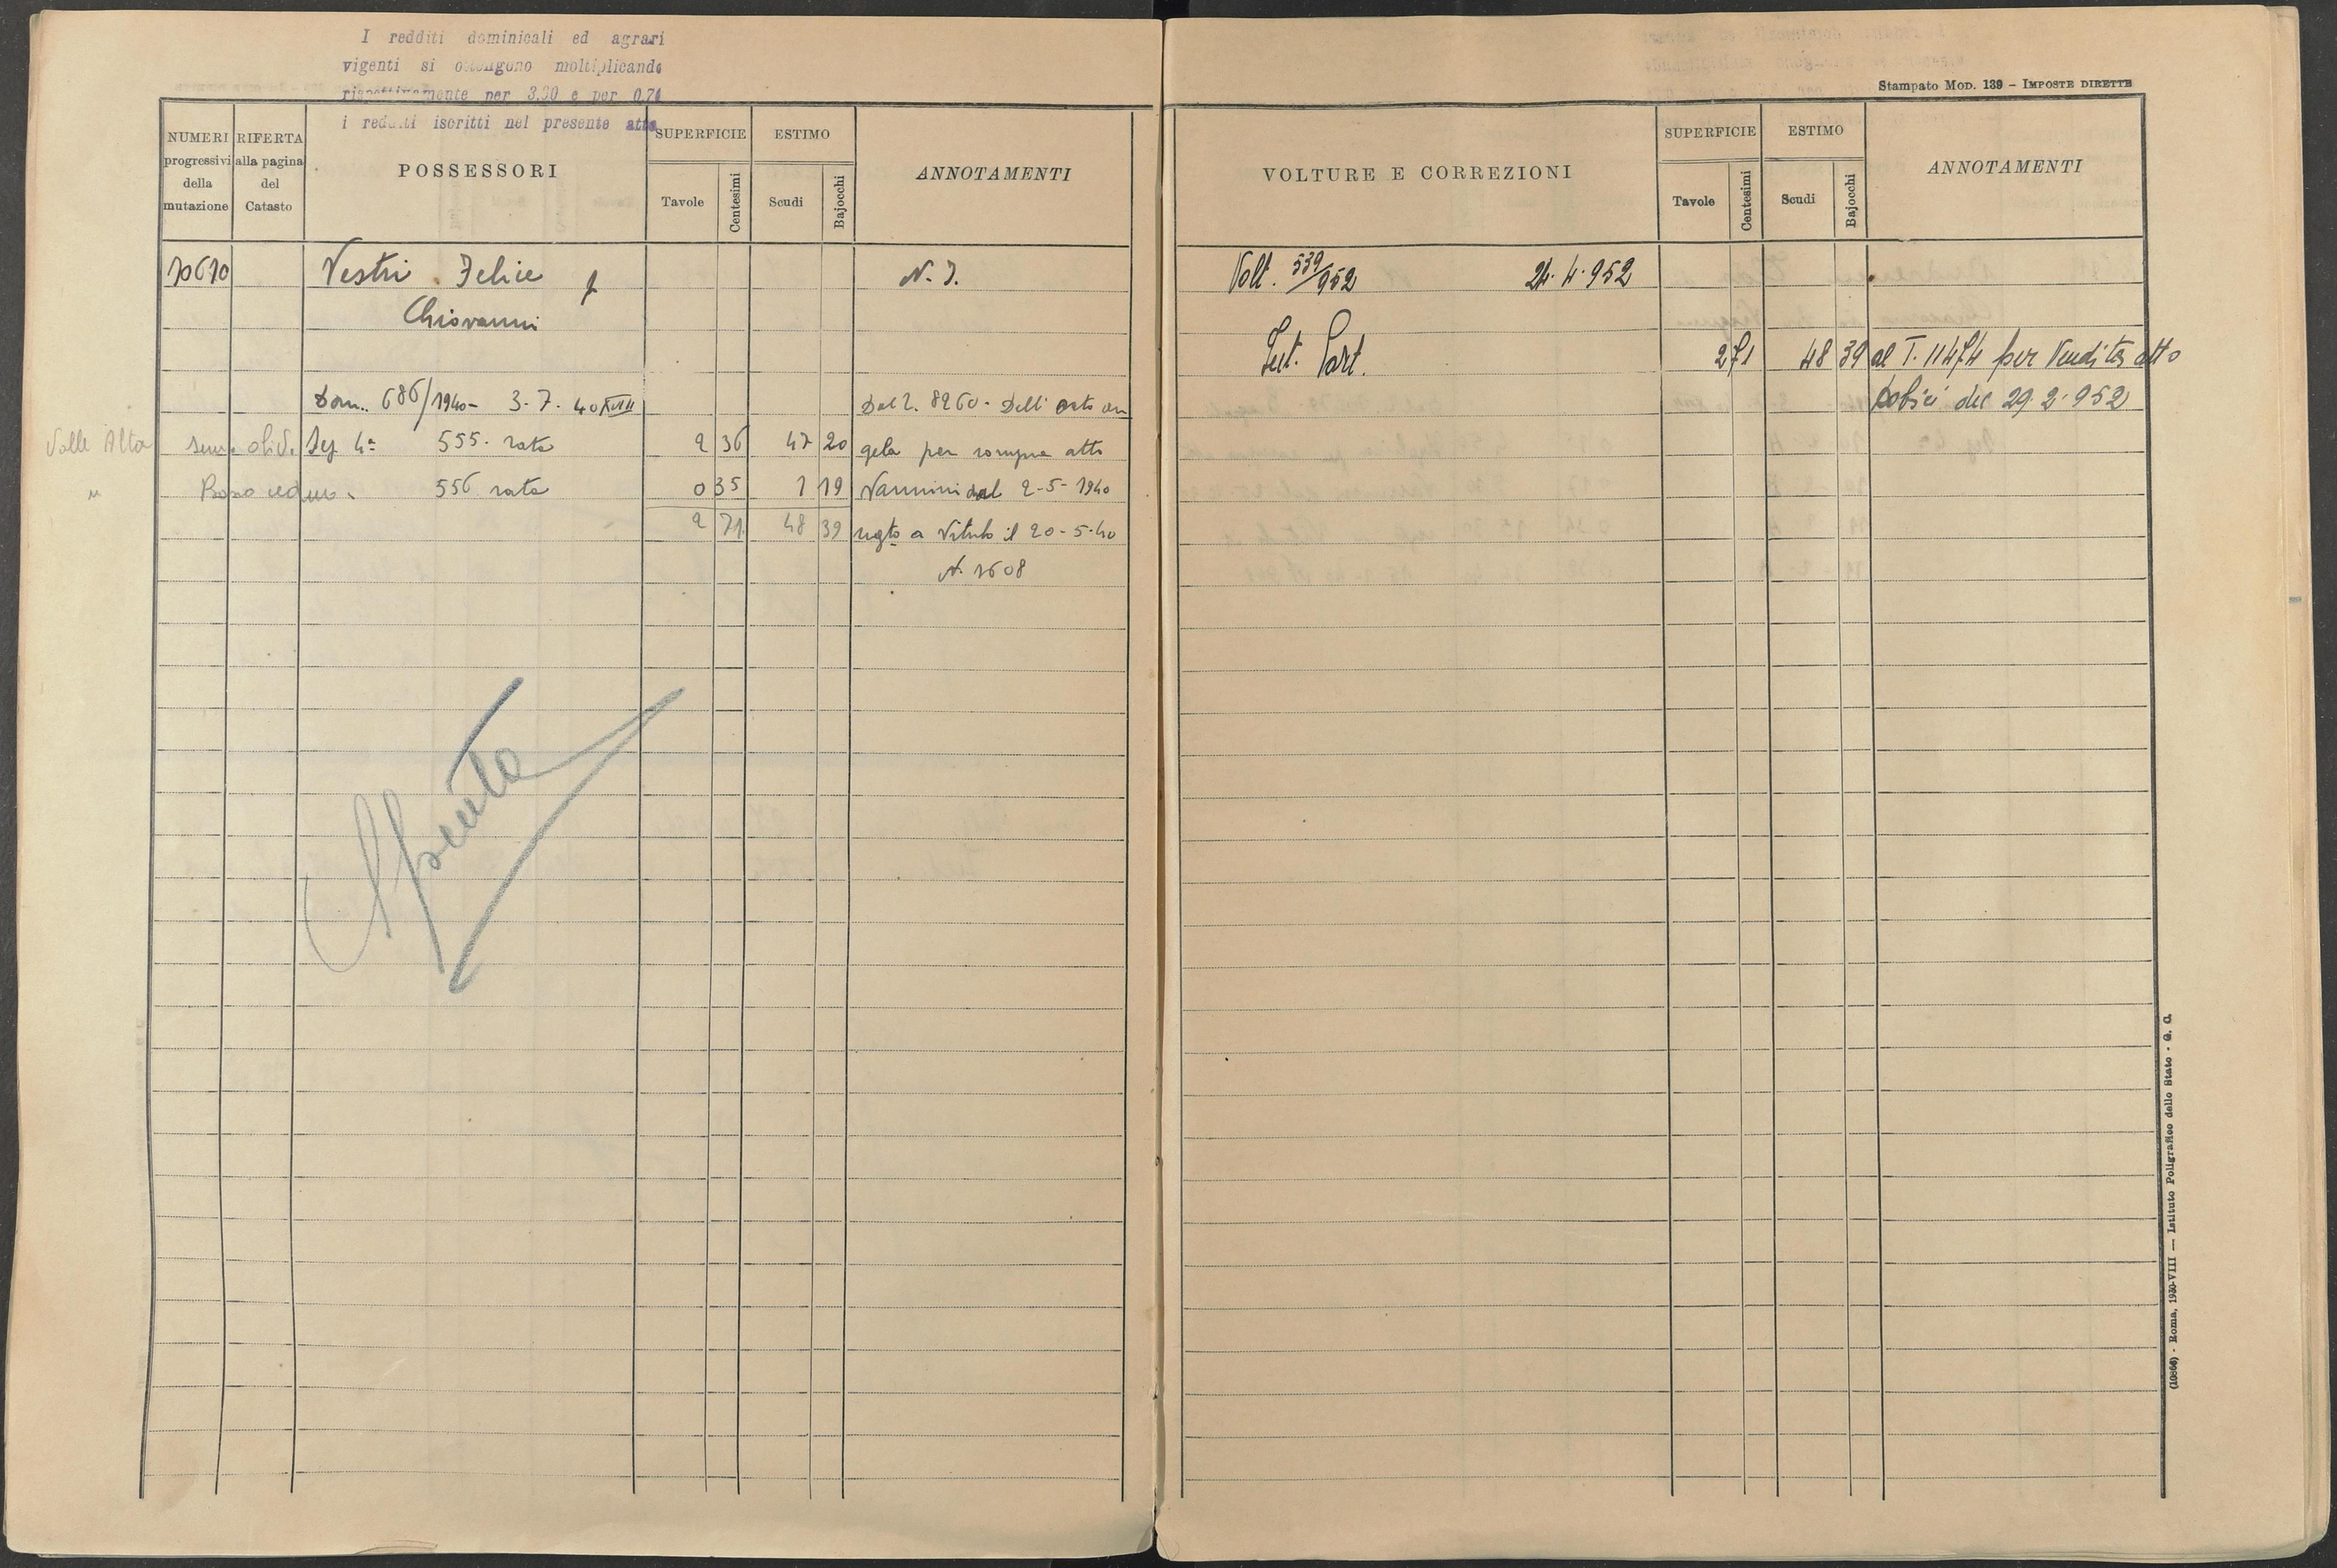 I redditi dominicali ed agrari
vigenti si ottengono moltiplicando
rispettivamente per 3,30 e per 0,74
i redditi iscritti nel presente atto
NUMERI progressivi della mutazione
RIFERTA alla pagina del Catasto
POSSESSORI
SUPERFICIE
Tavole
Centesimi
ESTIMO
Scudi
Bajocchi
ANNOTAMENTI
10610 Vestri Felice f N. I.
Giovanni
Dom. 686/1940 - 3.7.40 XVIII Dal 2. 8260 - Dell'Orto An
Valle Alta sem. oliv. Sez 4ª 555 rata 2 36 47 20 gela per compra atto
" Bosco ceduo 556 rata 0 35 1 19 Vannini del 2-5-1940
2 71 48 39 regto a Viterbo il 20-5-40
N. 1608
Spenta
Stampato Mod. 139 - IMPOSTE DIRETTE
VOLTURE E CORREZIONI
SUPERFICIE
Tavole
Centesimi
ESTIMO
Scudi
Bajocchi
ANNOTAMENTI
Volt. 539/952 24.4.952
Part. 2 71 48 39 al T. 11474 per Vendita atto
del 29.2.952
(10866) - Roma, 1930-VIII — Istituto Poligrafico dello Stato - G. C.